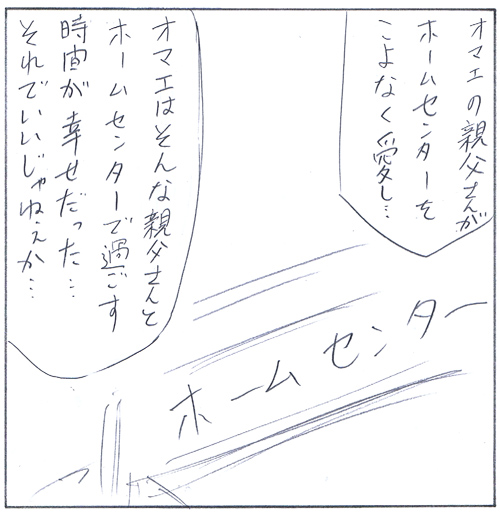 オマエの親父さんが
ホームセンターを
こよなく愛し…
オマエはそんな親父さんと
ホームセンターで過ごす
時間が幸せだった…
それでいいじゃねぇか…
ホームセンター